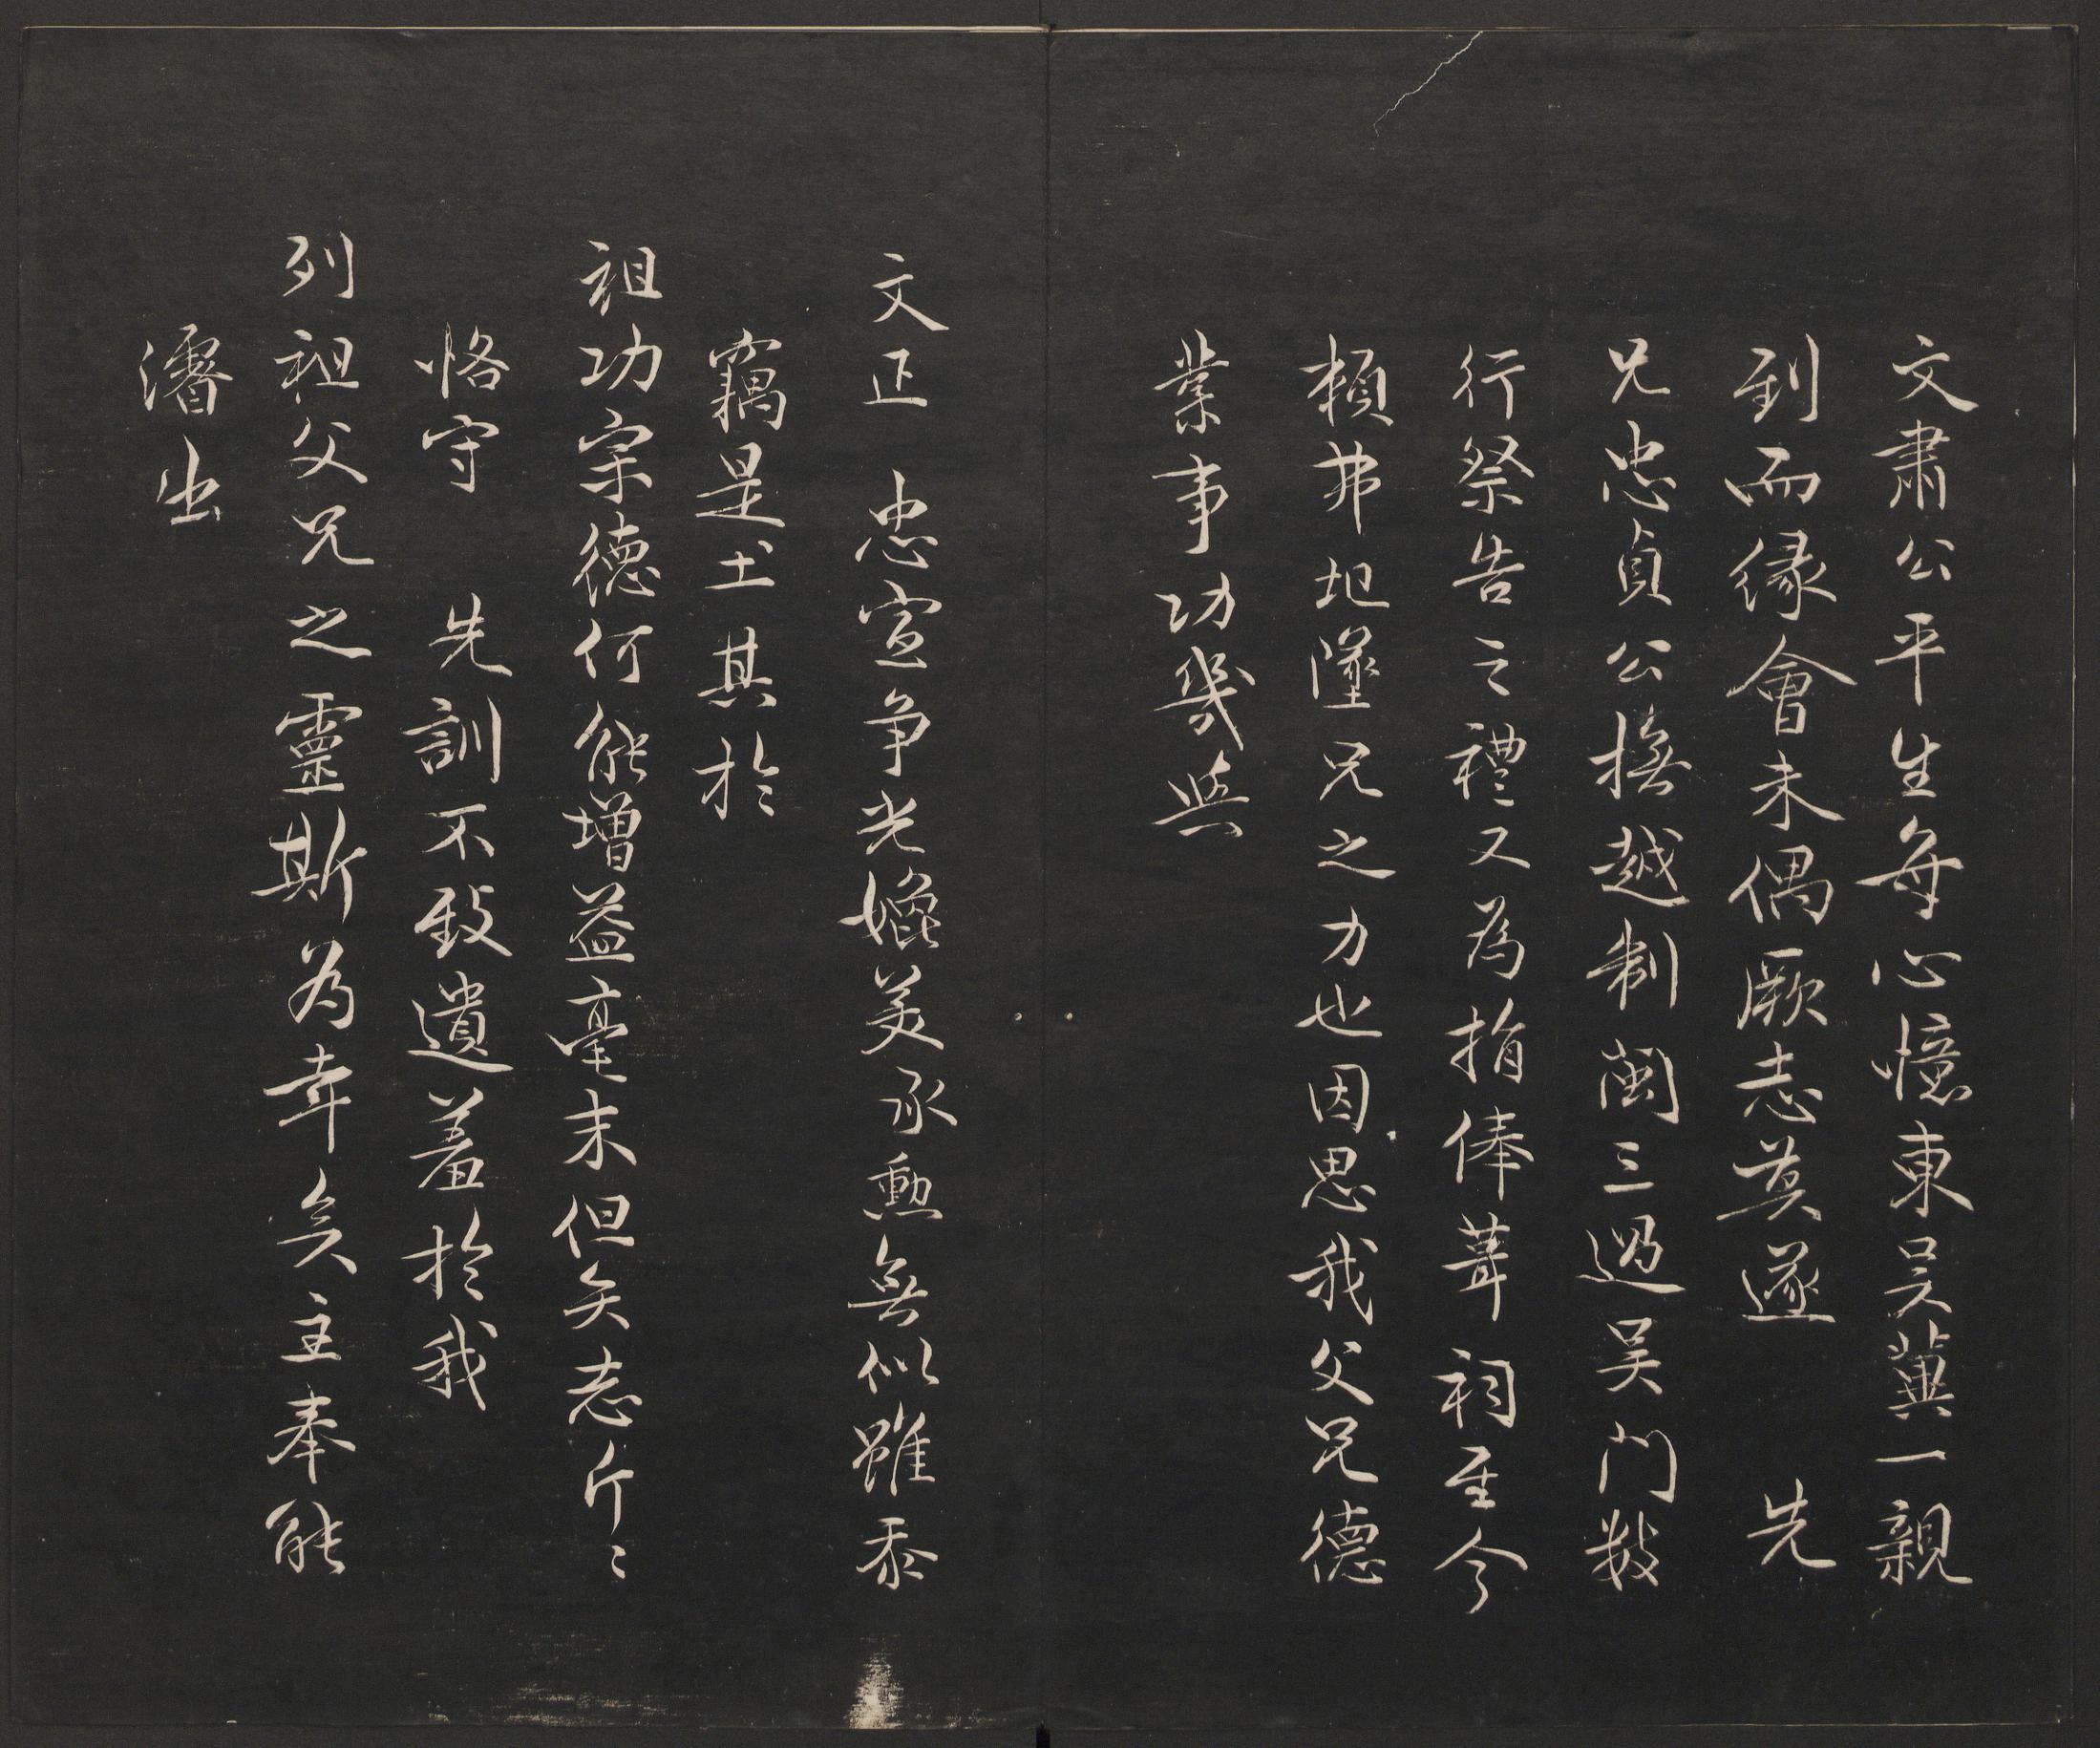 文肅公平生每心憶東吴冀一親
到而緣會未偶厥志莫遂 先
兄忠貞公撫越制閩三過吴門数
行祭告之禮又為捐俸葺祠至今
頼弗地墜兄之力也因思我父兄德
業事功幾與
文正 忠宣争光媲美承勲無似雖忝
竊是土其於
祖功宗德何能增益毫末但矢志斤〻
恪守 先訓不致遺羞於我
列祖父兄之靈斯為幸矣主奉能
濬出